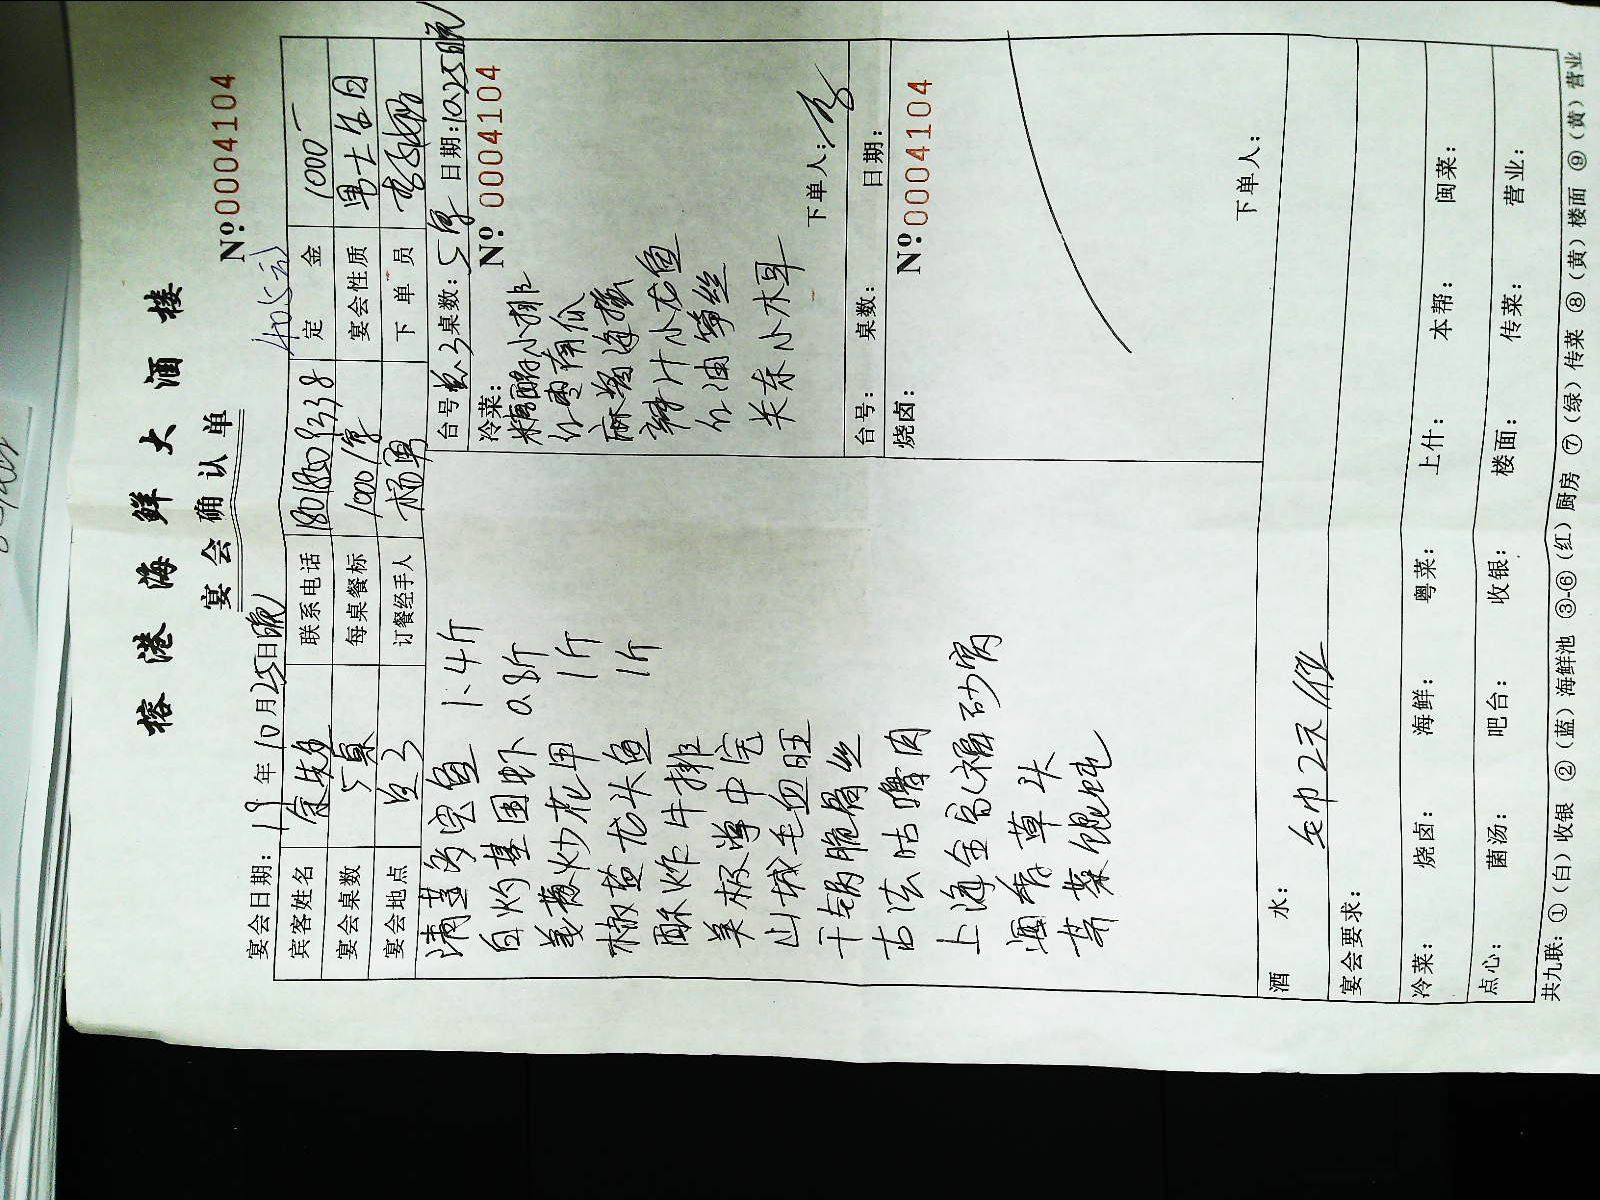 榕港海鲜大酒楼
宴会确认单
№:0004104
宴会日期：19年10月25日晚
宾客姓名 联系电话 定金 1000
宴会桌数 5桌 每桌餐标 1000/桌 宴会性质 男士生日
宴会地点 豆3 订餐经手人 杨勇 下单员
清蒸 鱼 1.4斤
白灼基围虾 0.8斤
姜葱炒花甲 1斤
椒盐龙头鱼 1斤
酥炸牛排
美极掌中宝
山城毛血旺
干锅脆骨丝
古法咕噜肉
上海全家福砂窝
酒香草头
荠菜馄饨
台号: 豆3 桌数：5桌 日期：10.25晚
№:0004104
冷菜：
糖醋小排
红枣南瓜
麻酱海蜇
辣汁小龙鱼
红油笋丝
关东小木耳
下单人：李
台号： 桌数： 日期：
№:0004104
烧卤：
下单人：
酒水： 毛巾2元/位
宴会要求：
冷菜： 烧卤： 海鲜： 粤菜： 上什： 本帮： 闽菜：
点心： 菌汤： 吧台： 收银： 楼面： 传菜： 营业：
共九联：①（白）收银 ②（蓝）海鲜池 ③-⑥（红）厨房 ⑦（绿）传菜 ⑧（黄）楼面 ⑨（黄）营业